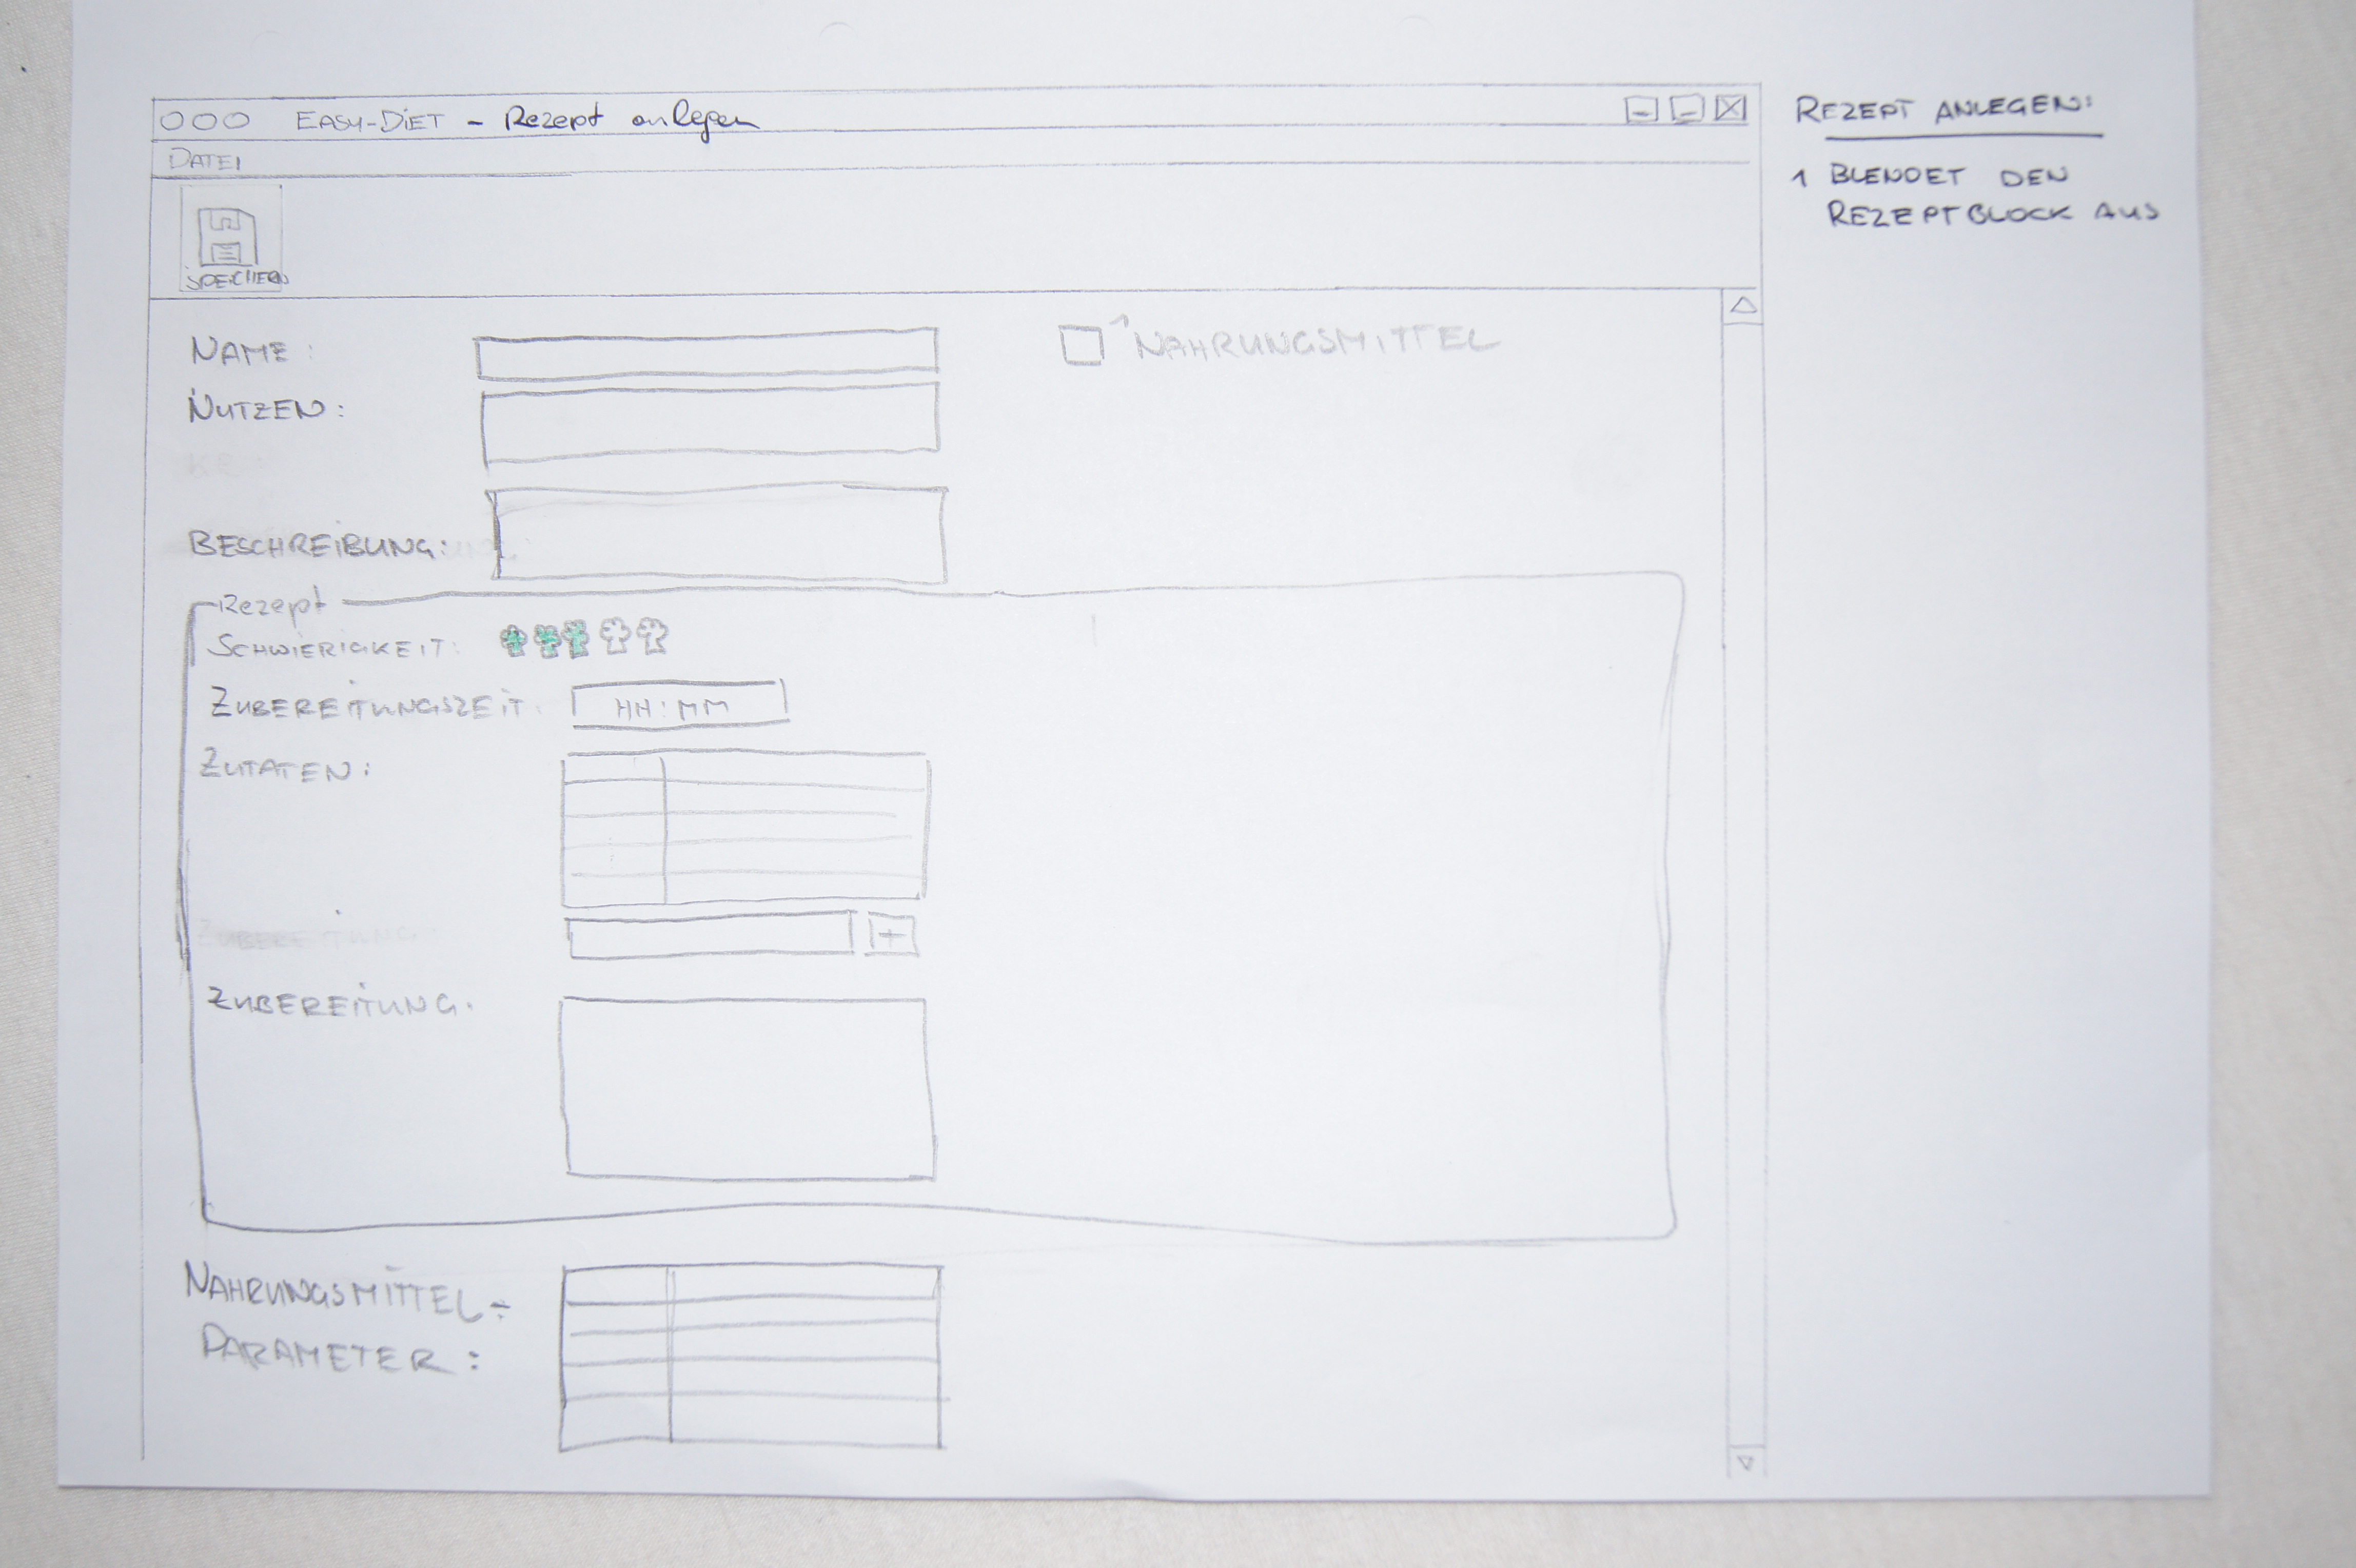 EASY-DIET - Rezept anlegen
DATEI
SPEICHERN
NAME:
1 NAHRUNGSMITTEL
NUTZEN:
BESCHREIBUNG:
Rezept
SCHWIERIGKEIT:
ZUBEREITUNGSZEIT:
HH:MM
ZUTATEN:
+
ZUBEREITUNG:
NAHRUNGSMITTEL-
PARAMETER:
REZEPT ANLEGEN:
1 BLENDET DEN
REZEPTBLOCK AUS